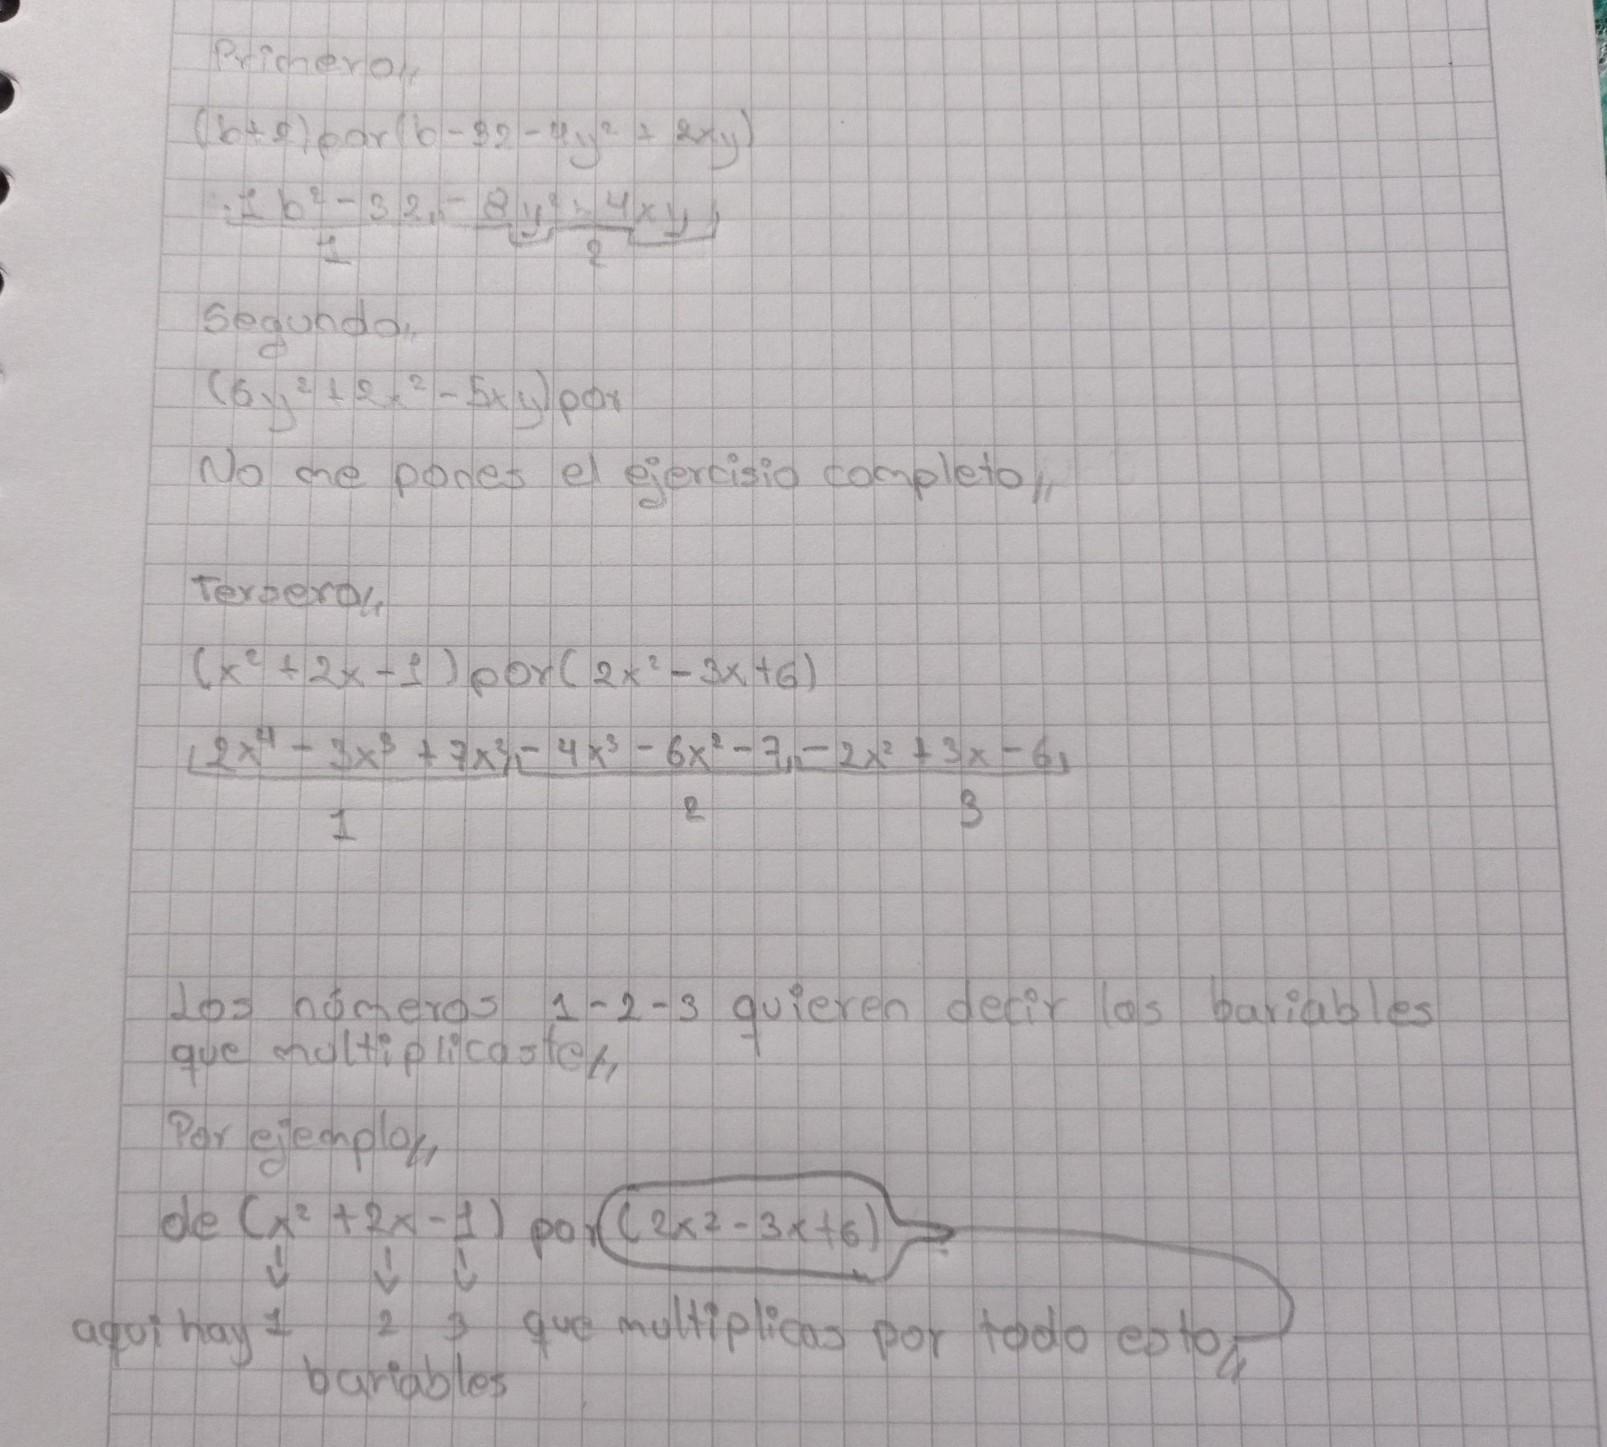 Primero,,
(b+2) por (b-32-4y²+2xy)
1b²-32,-8y²+4xy,
1 2
Segundo,,
(6y²+2x²-5xy) por
No me pones el ejercisio completo,,
Tersero,,
(x²+2x-1) por (2x²-3x+6)
2x⁴-3x³+7x²,-4x³-6x²-7,-2x²+3x-6,
1 2 3
Los números 1-2-3 quieren decir las bariables
que multiplicaste,,
Por ejemplo,,
de (x²+2x-1) por (2x2-3x+6)
aqui hay 1 2 3 que multiplicas por todo esto,,
bariables